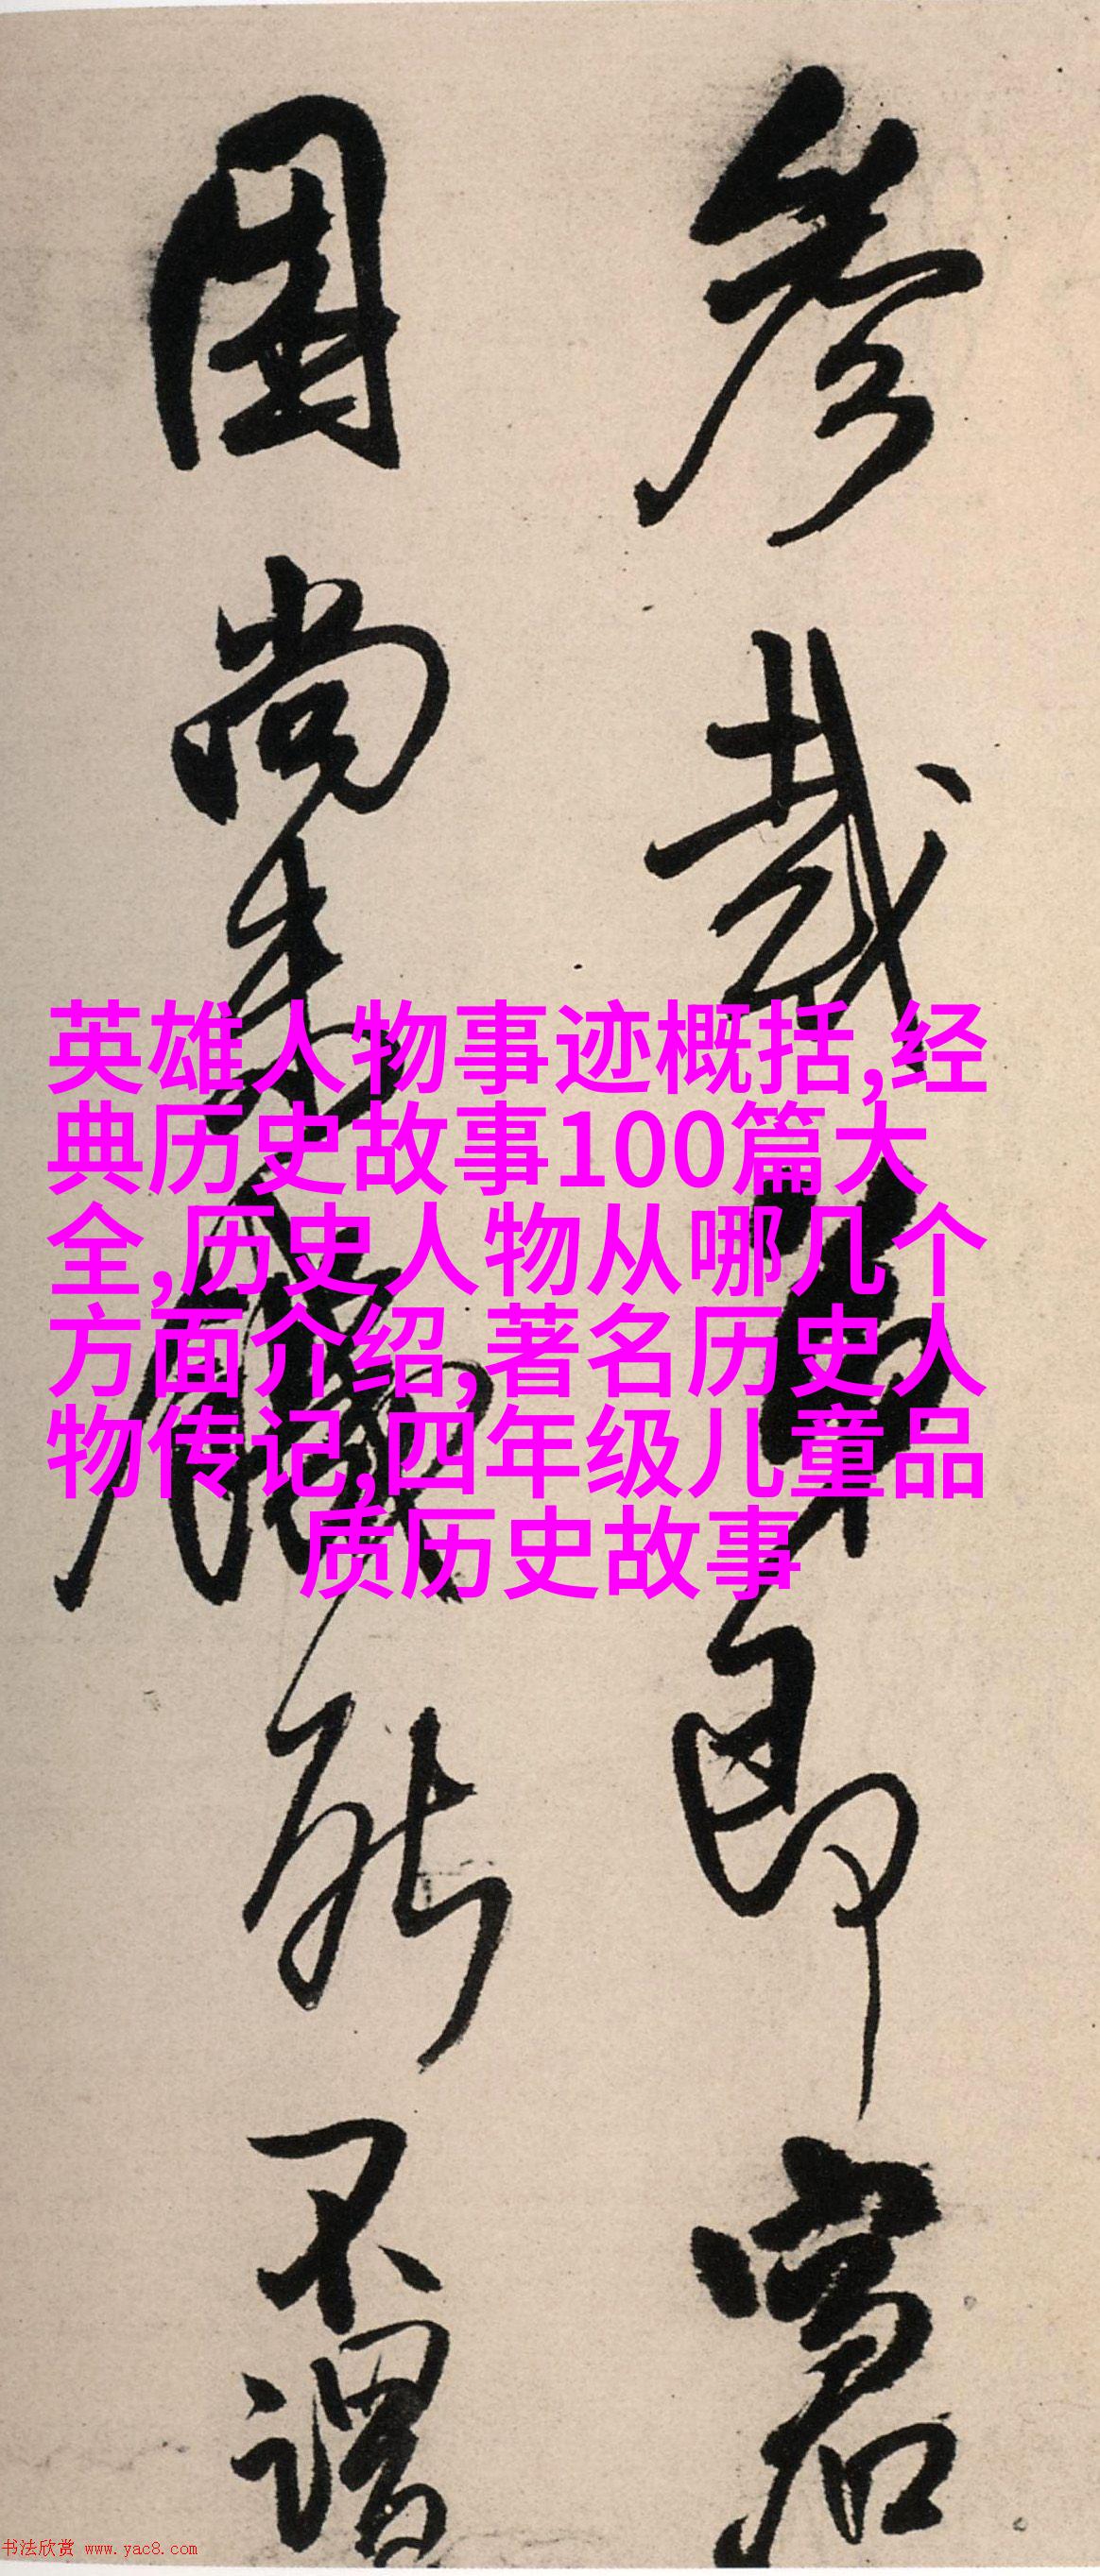 参哉
即窘
困尚未
能不谓
英雄人物事迹概括,经
典历史故事100篇大
全,历史人物从哪几个
方面介绍,著名历史人
物传记,四年级儿童品
质历史故事
书法欣赏 www.yac8.com